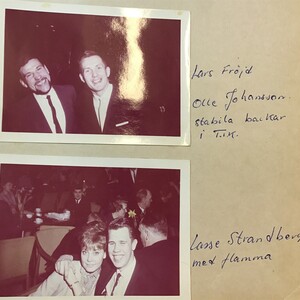 Lars Fröjd
Olle Johansson
stabila backar
i T.I.K.
Lasse Strandberg
med flamma